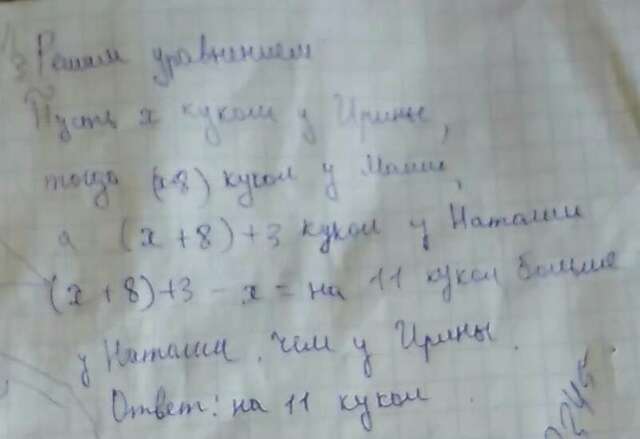 Решим уравнением
Пусть x кукол у Ирины,
тогда (x8) кукол у Маши,
а (x+8)+3 кукол у Наташи
(x+8)+3-x= на 11 кукол больше
у Наташи, чем у Ирины.
Ответ: на 11 кукол